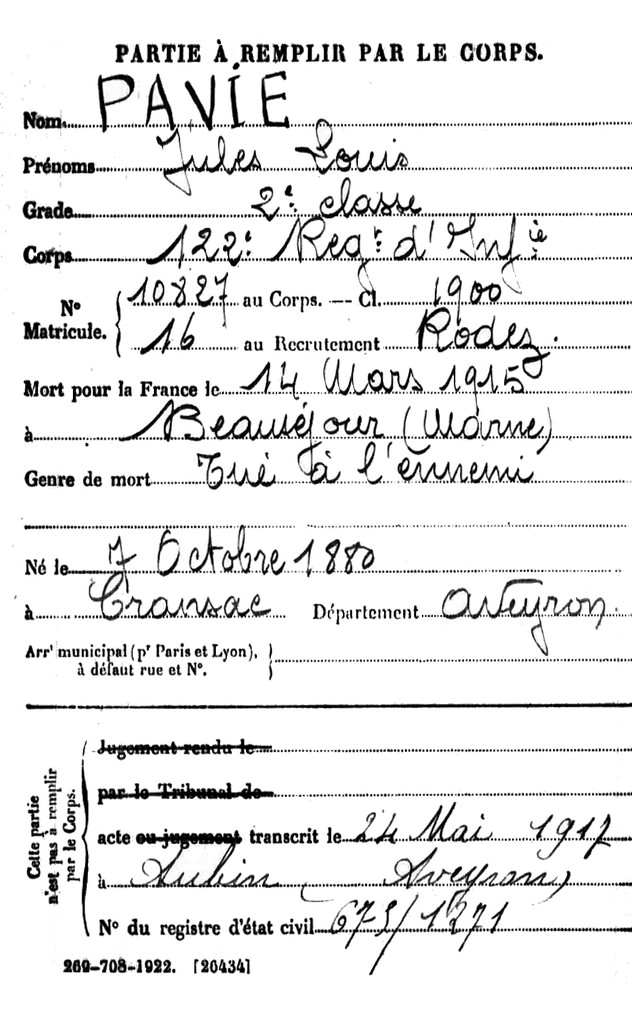 PARTIE À REMPLIR PAR LE CORPS.
Nom PAVIE
Prénoms Jules Louis
Grade 2e classe
Corps 122e Regt d'Infie
No Matricule. 10827 au Corps. — Cl. 1900
16 au Recrutement Rodez.
Mort pour la France le 14 Mars 1915
à Beauséjour (Marne)
Genre de mort Tué à l'ennemi
Né le 7 Octobre 1880
à Cransac Département Aveyron.
Arrt municipal (pr Paris et Lyon),
à défaut rue et No.
Cette partie
n'est pas à remplir
par le Corps.
Jugement rendu le
par le Tribunal de
acte ou jugement transcrit le 24 Mai 1917
à Aubin (Aveyron)
No du registre d'état civil 675/1271
269-708-1922. [26434]